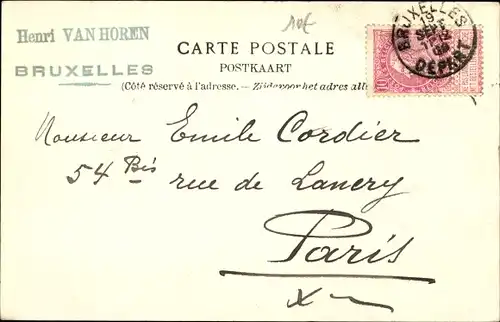 Henri VAN HOREN
BRUXELLES
10f
CARTE POSTALE
POSTKAART
(Côté réservé à l'adresse. — Zijde voor het adres
BRUXELLES
19
SEPT
DEPART
10
Monsieur Emile Cordier
54 Bis rue de Lancry
Paris
X